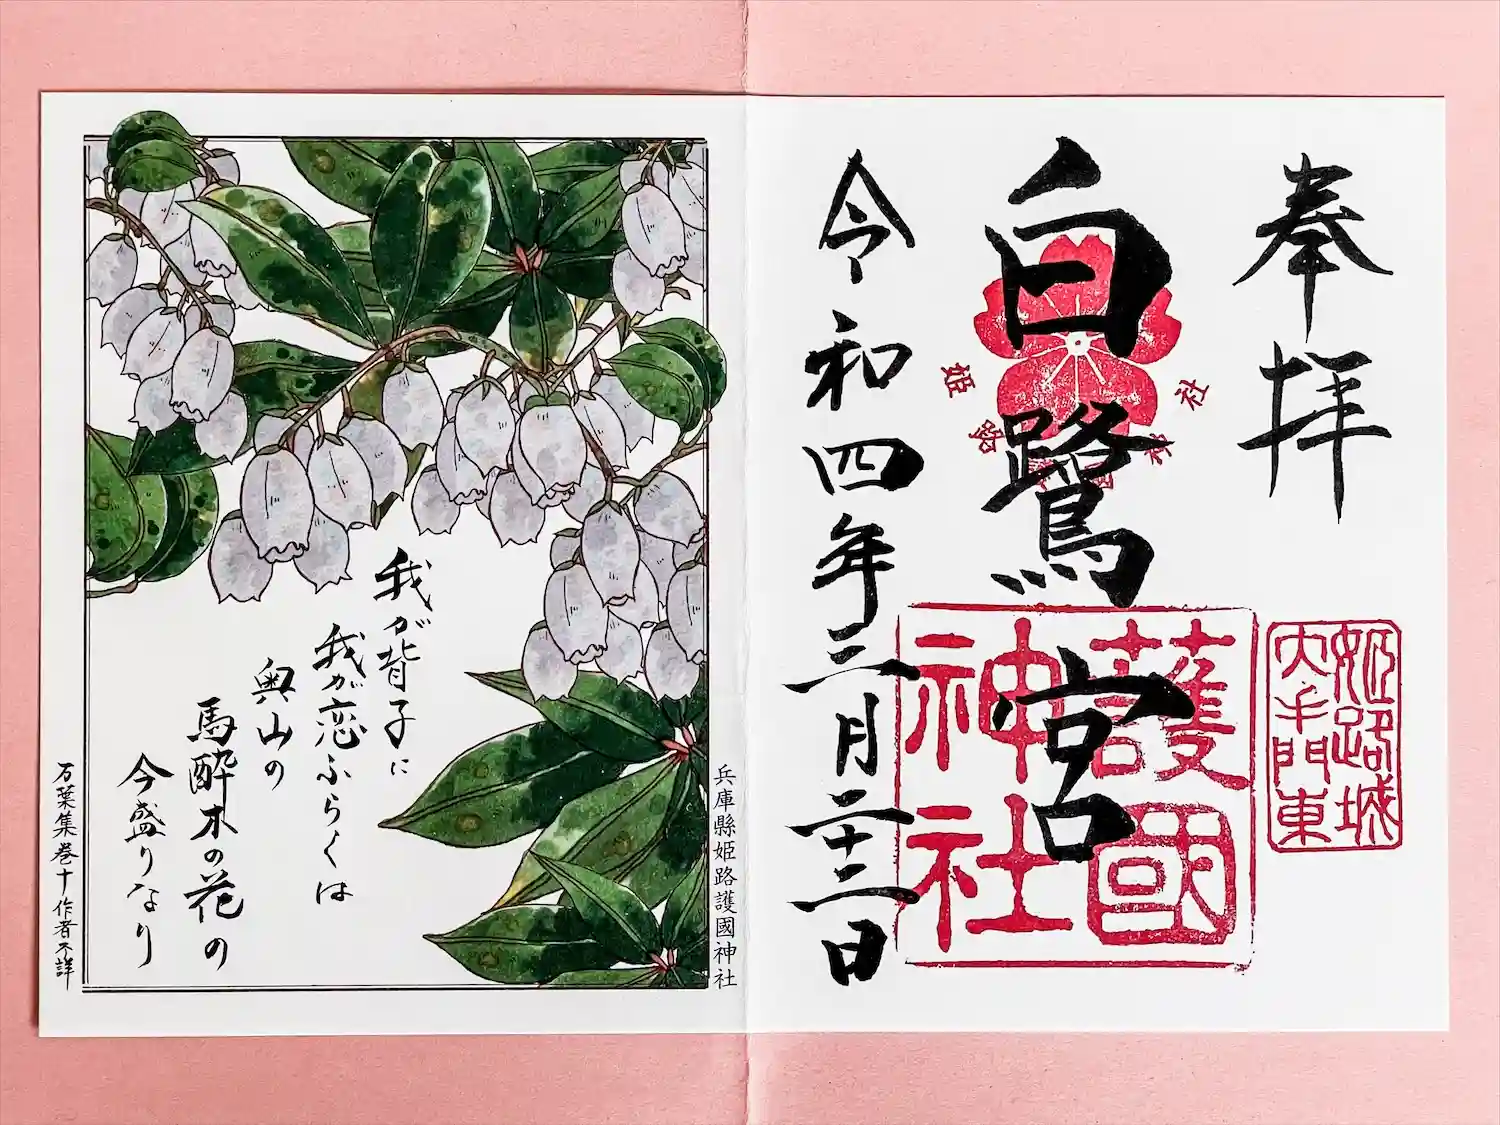 奉拝
姫路城
大手門東
白鷺宮
姫路
神社
護國
神社
令和四年三月二十三日
兵庫縣姫路護國神社
我が背子に
我が恋ふらくは
奥山の
馬酔木の花の
今盛りなり
万葉集巻十作者不詳